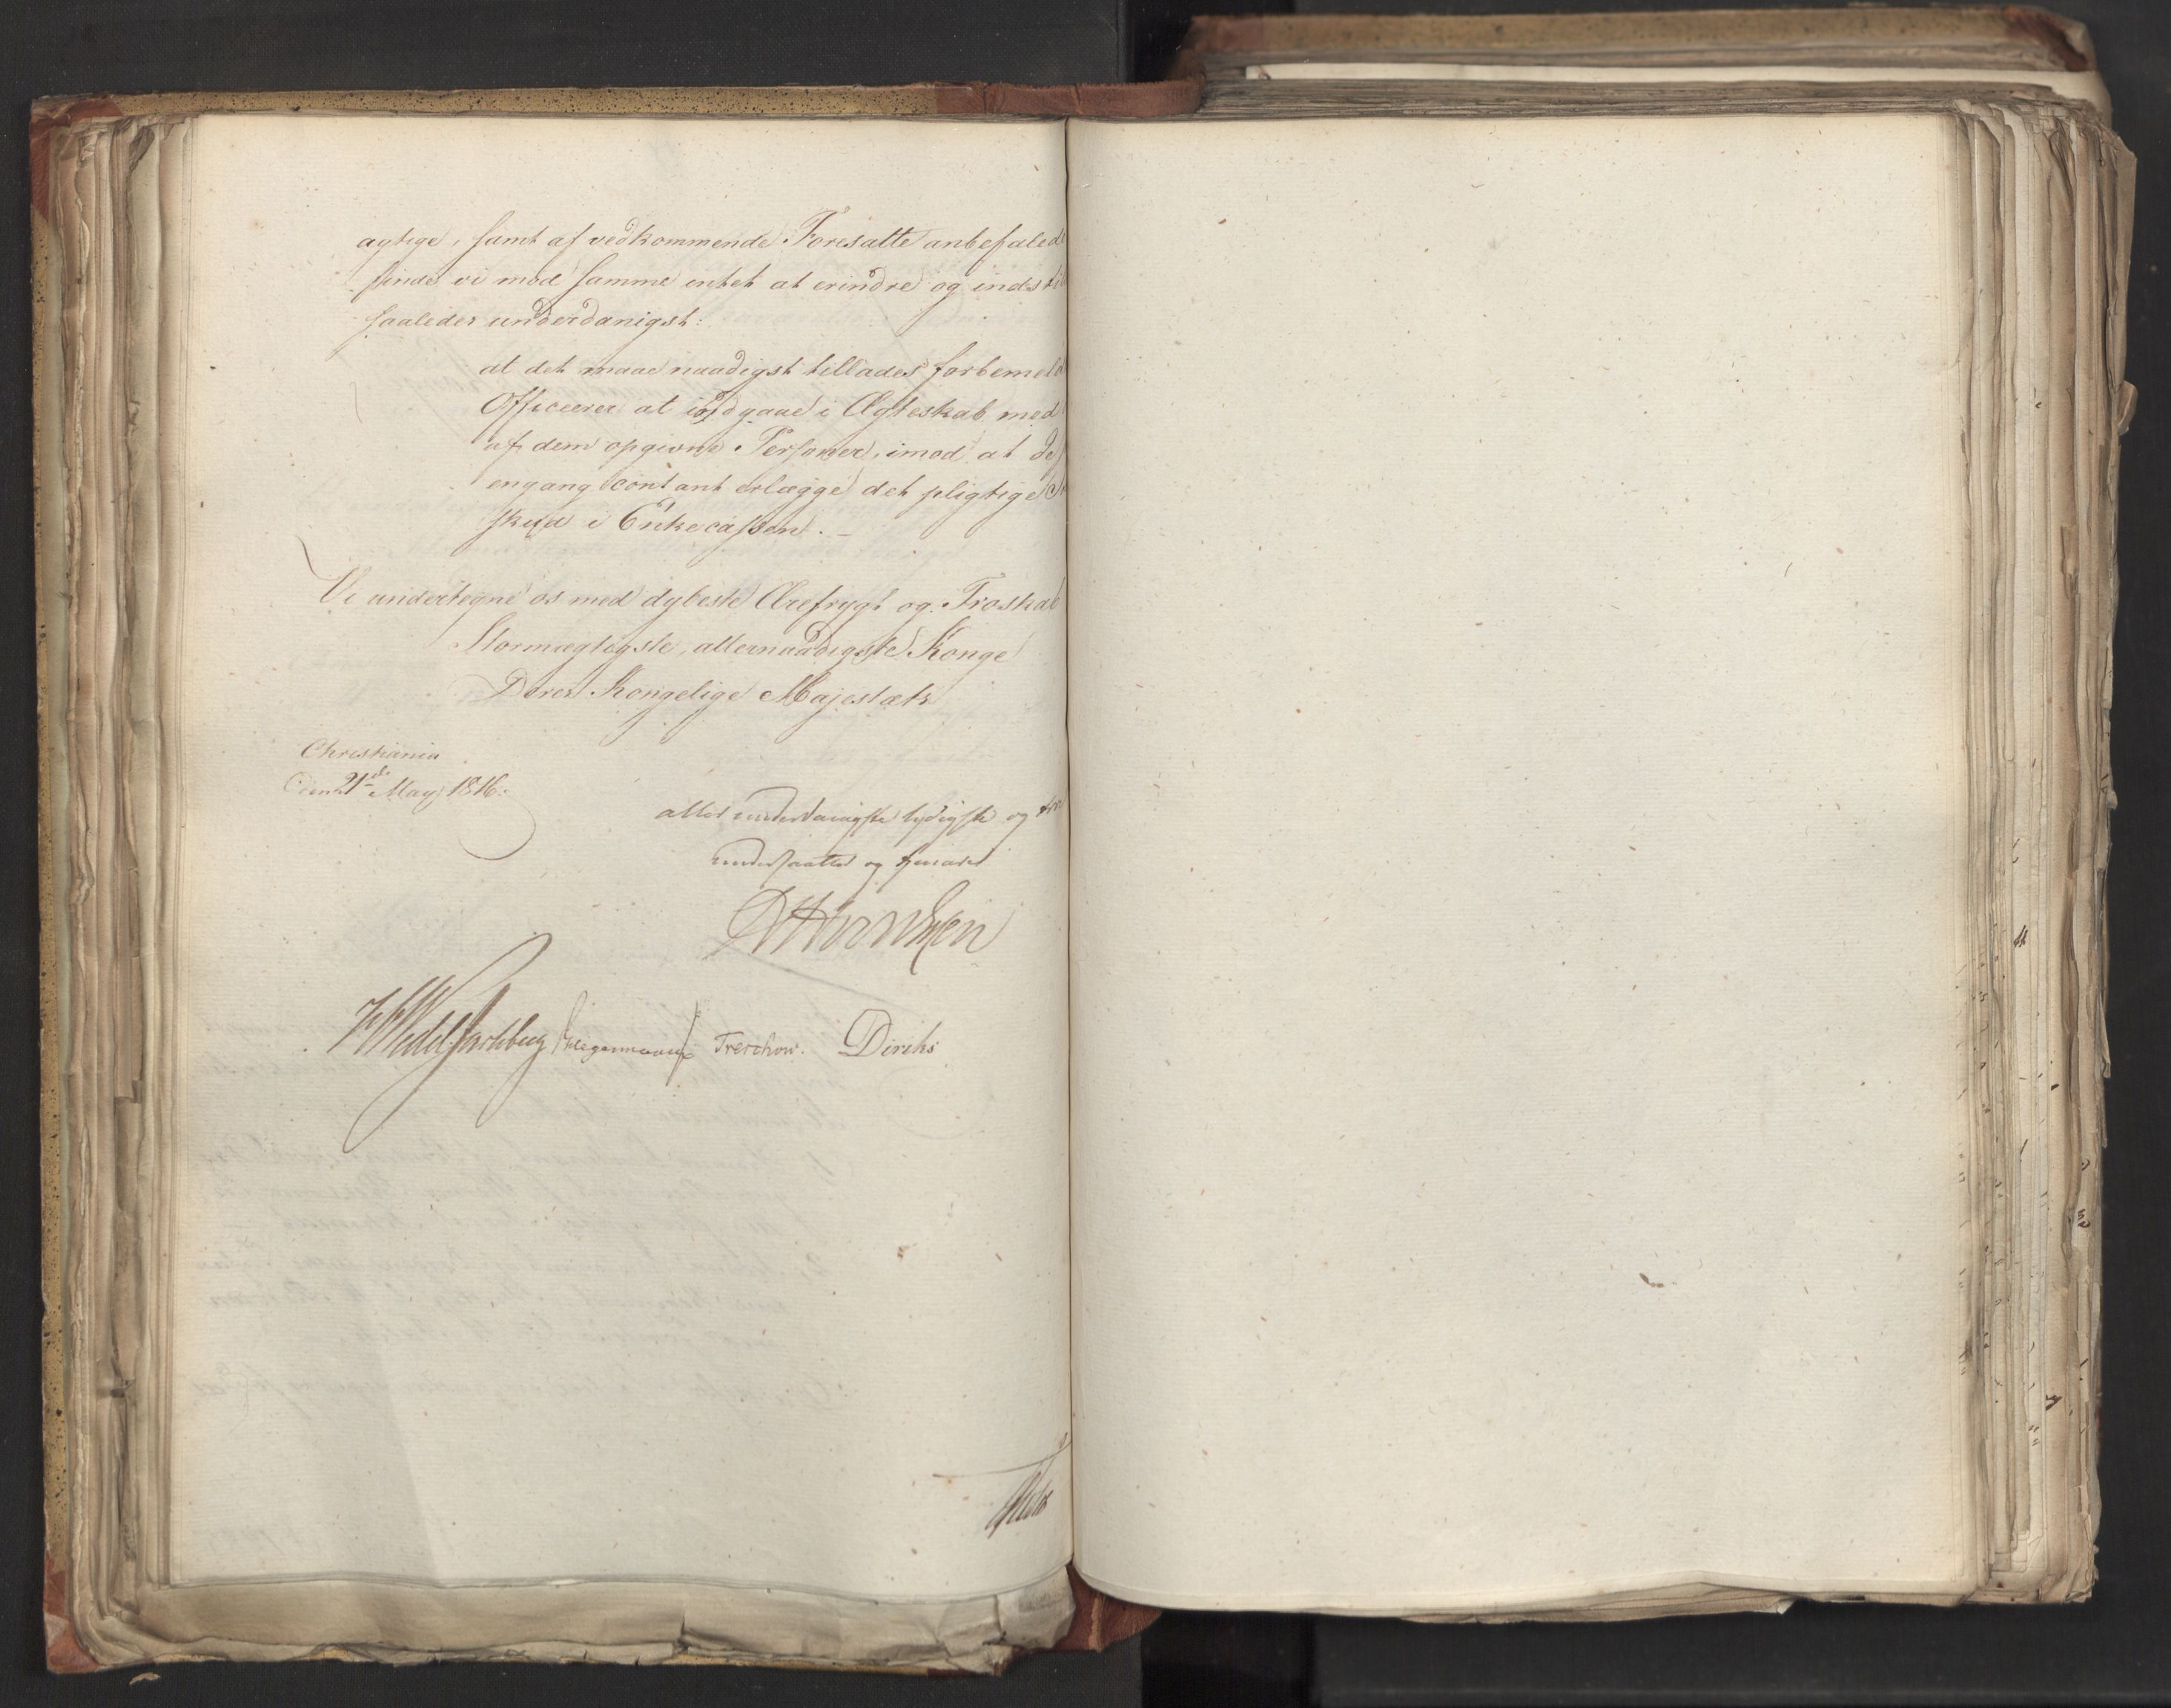 agtige, samt af vedkommende Foresatte anbefalede
finde vi mod samme intet at erindre og indsti
saaledes underdanigst:
at det maae naadigst tillades forbemeld
Officerer at indgaae i Ægteskab med
af dem opgivne Personer, imod at de
engang contant erlægge det pligtige
skud i Enkecassen. —
Vi undertegne os med dybeste Ærefrygt og Troskab
Stormægtigste, allernaadigste Konge
Deres Kongelige Majestæts
Christiania
den 21de May 1816.
allerunderdanigste lydigste og tro
undersaatter og tienere
HWedel Jarlsberg Hegermann Treschow. Diriks